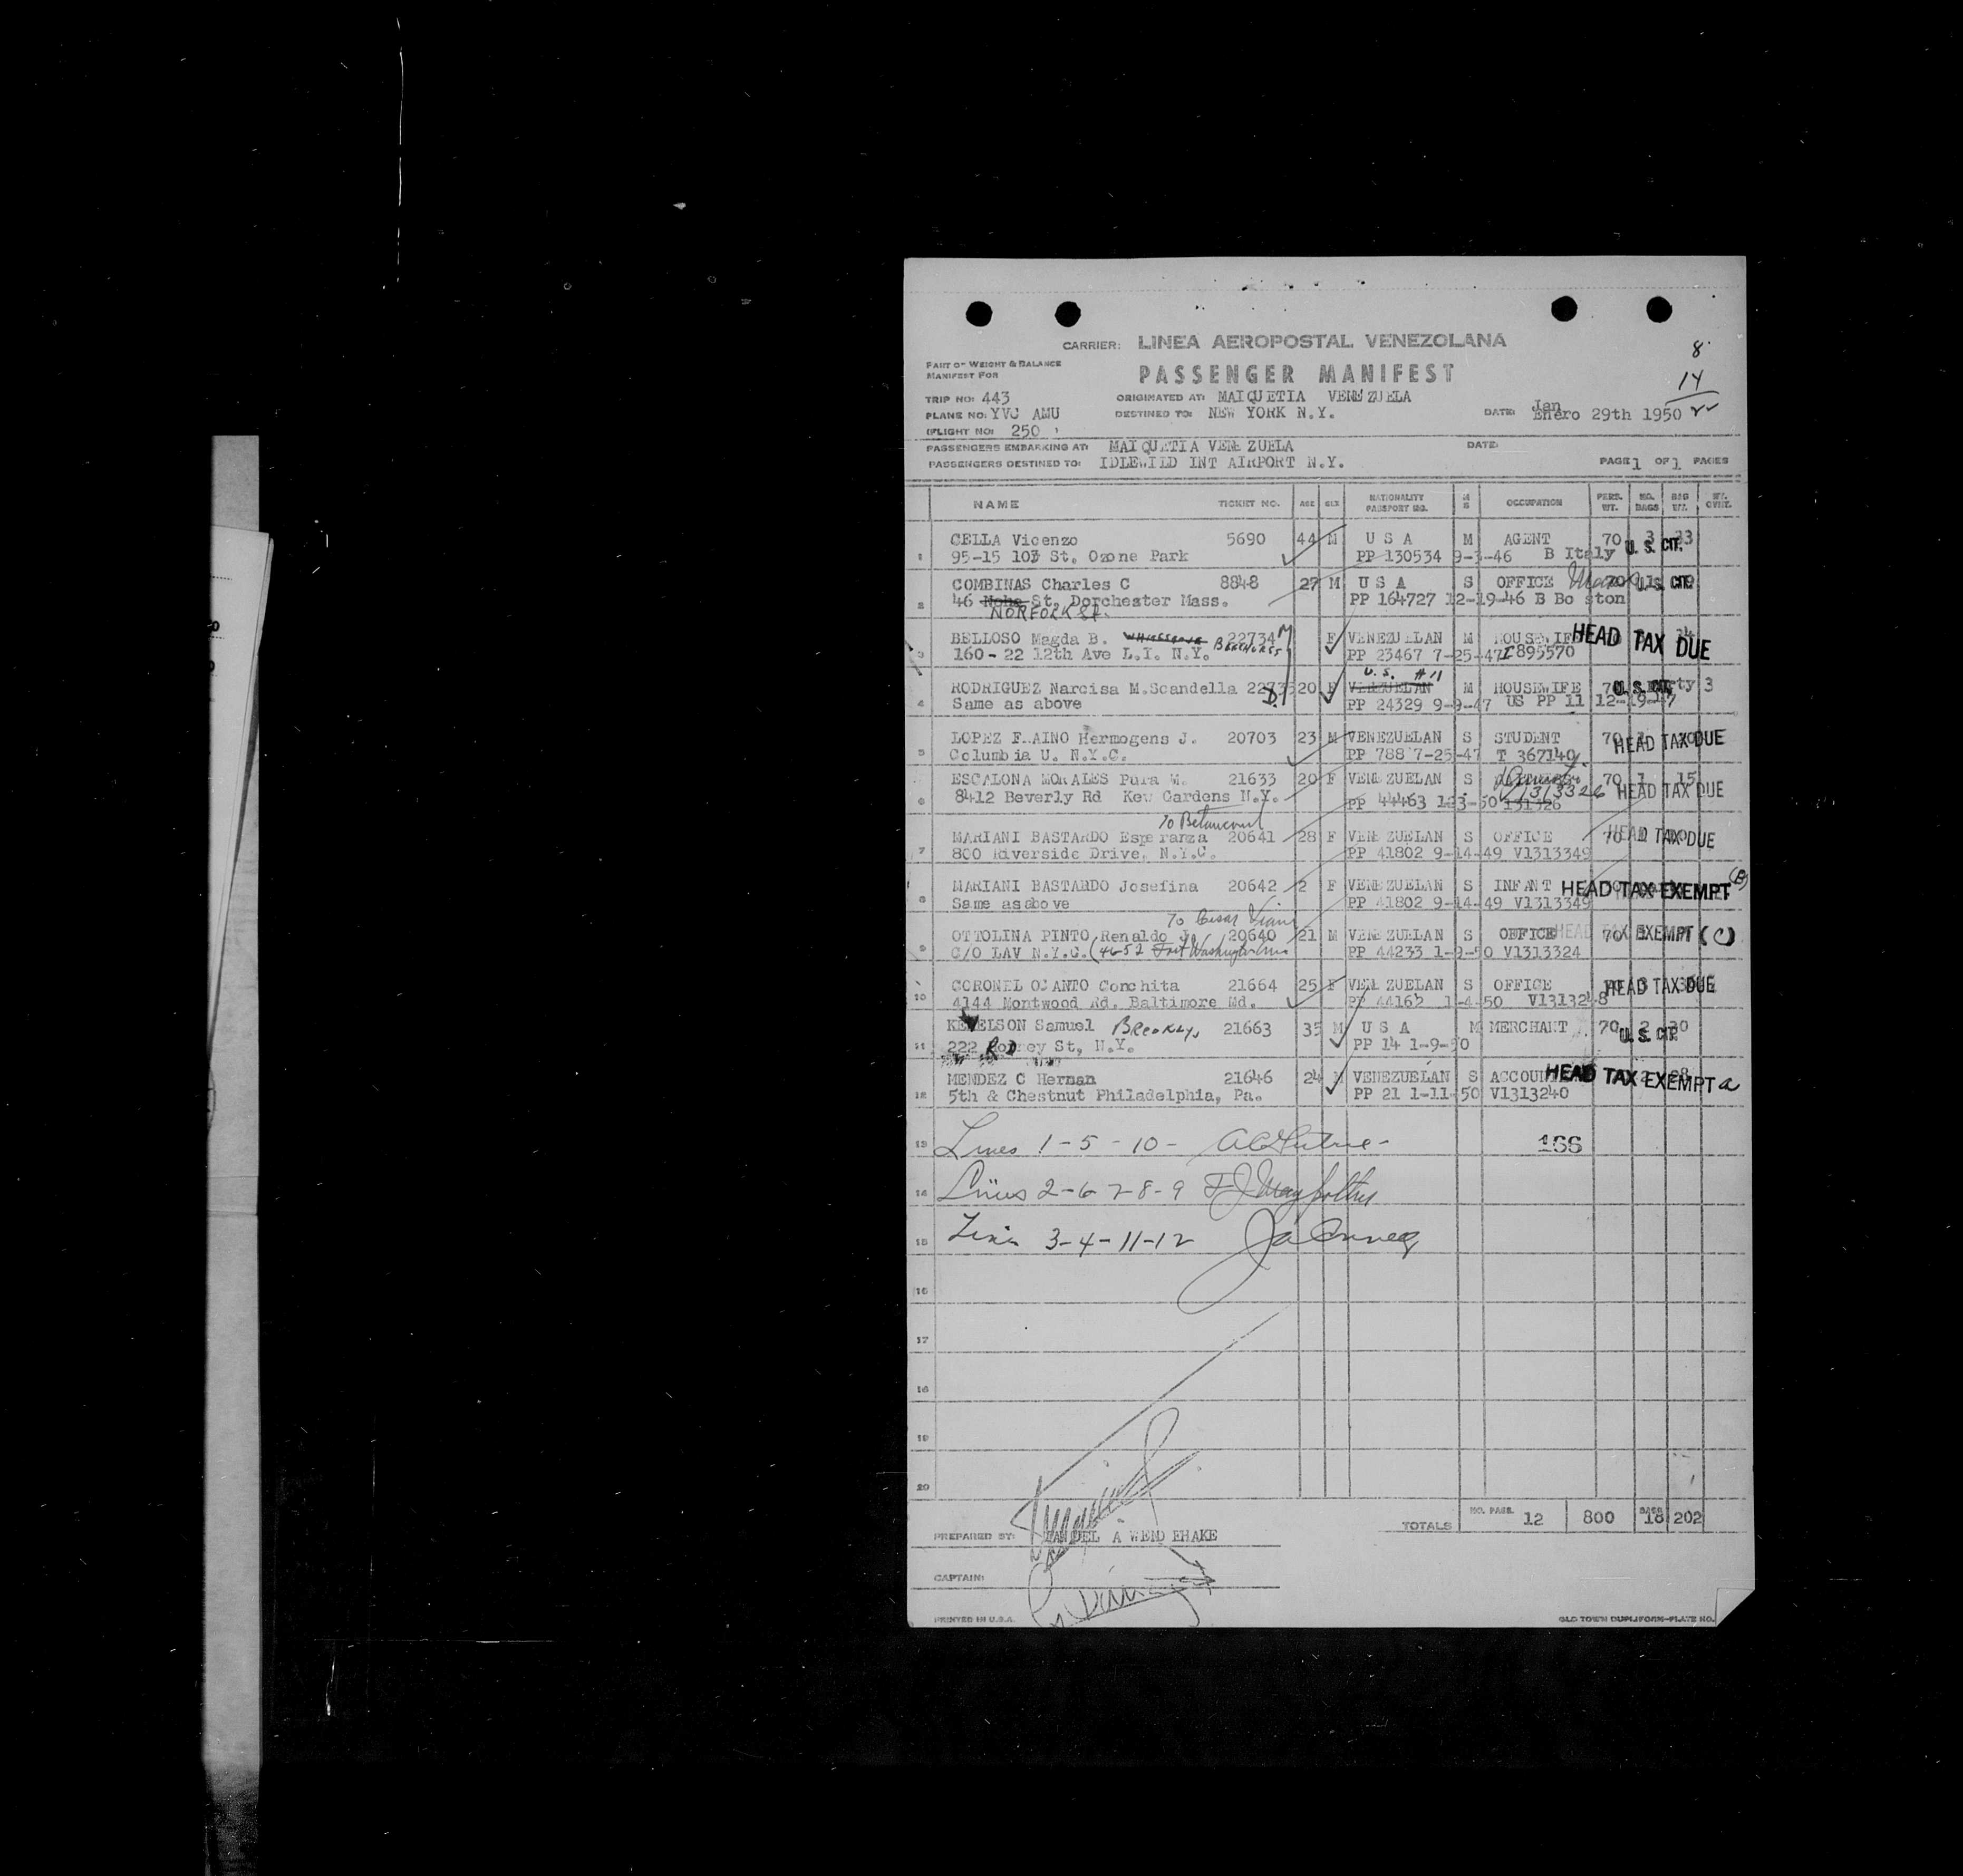 8
14
CARRIER: LINEA AEROPOSTAL VENEZOLANA
PART OF WEIGHT & BALANCE
MANIFEST FOR
PASSENGER MANIFEST
TRIP NO: 443
ORIGINATED AT: MAIQUETIA VENEZUELA
PLANE NO: YVC AMU
DESTINED TO: NEW YORK N.Y.
DATE: Jan Enero 29th 1950
FLIGHT NO: 250
PASSENGERS EMBARKING AT: MAIQUETIA VENEZUELA DATE:
PASSENGERS DESTINED TO: IDLEWILD INT AIRPORT N.Y. PAGE 1 OF 1 PAGES
NAME TICKET NO. AGE SEX NATIONALITY PASSPORT NO. M S OCCUPATION PERS. WT. NO. BAGS BAG WT.
1 CELLA Vicenzo 5690 44 M U S A M AGENT 70 3 33 U. S. CIT.
95-15 103 St. Ozone Park PP 130534 9-3-46 B Italy
2 COMBINAS Charles C 8848 27 M U S A S OFFICE 70 U.S. CIT.
46 St. Dorchester Mass. PP 164727 12-19-46 B Boston
NORFOLK St.
3 BELLOSO Magda B. 22734 F VENEZUELAN M HOUSEWIFE HEAD TAX DUE
160-22 12th Ave L.I. N.Y. BEECHURST PP 23467 7-25-47 895570
U.S. #11
4 RODRIGUEZ Narcisa M.Scandella 22735 20 F VENEZUELAN M HOUSEWIFE 70 U. S. CIT. 3
Same as above PP 24329 9-9-47 US PP 11 12-19-47
5 LOPEZ F.AINO Hermogens J. 20703 23 M VENEZUELAN S STUDENT 70 HEAD TAX DUE
Columbia U. N.Y.C. PP 788 7-25-47 T 367140
6 ESCALONA MORALES Pura M. 21633 20 F VENEZUELAN S 70 1 15
8412 Beverly Rd Kew Gardens N.Y. PP 44463 123-50 131326 V1313326 HEAD TAX DUE
To Betancourt
7 MARIANI BASTARDO Esperanza 20641 28 F VENEZUELAN S OFFICE 70 HEAD TAX DUE
800 Riverside Drive, N.Y.C. PP 41802 9-14-49 V1313349
8 MARIANI BASTARDO Josefina 20642 2 F VENEZUELAN S INFANT HEAD TAX EXEMPT (B)
Same as above PP 41802 9-14-49 V1313349
To Cesar
9 OTTOLINA PINTO Renaldo J. 20640 21 M VENEZUELAN S OFFICE 70 HEAD TAX EXEMPT (C)
C/O LAV N.Y.C. PP 44233 1-9-50 V1313324
10 CORONEL OCANTO Conchita 21664 25 F VENEZUELAN S OFFICE HEAD TAX DUE
4144 Montwood Rd. Baltimore Md. PP 44162 1-4-50 V1313248
11 Samuel Brooklyn 21663 35 M U S A M MERCHANT 70 2 30 U. S. CIT.
222 St, N.Y. PP 14 1-9-50
12 MENDEZ C Hernan 21646 24 M VENEZUELAN S HEAD TAX EXEMPT a
5th & Chestnut Philadelphia, Pa. PP 21 1-11-50 V1313240
13 Lines 1-5-10- 166
14 Lines 2-6-7-8-9
15 Lines 3-4-11-12
16
17
18
19
20
TOTALS NO. PASS. 12 800 BAGS 18 202
PREPARED BY: MANUEL A WEND EHAKE
CAPTAIN:
PRINTED IN U.S.A. OLD TOWN DUPLIFORM-PLATE NO.